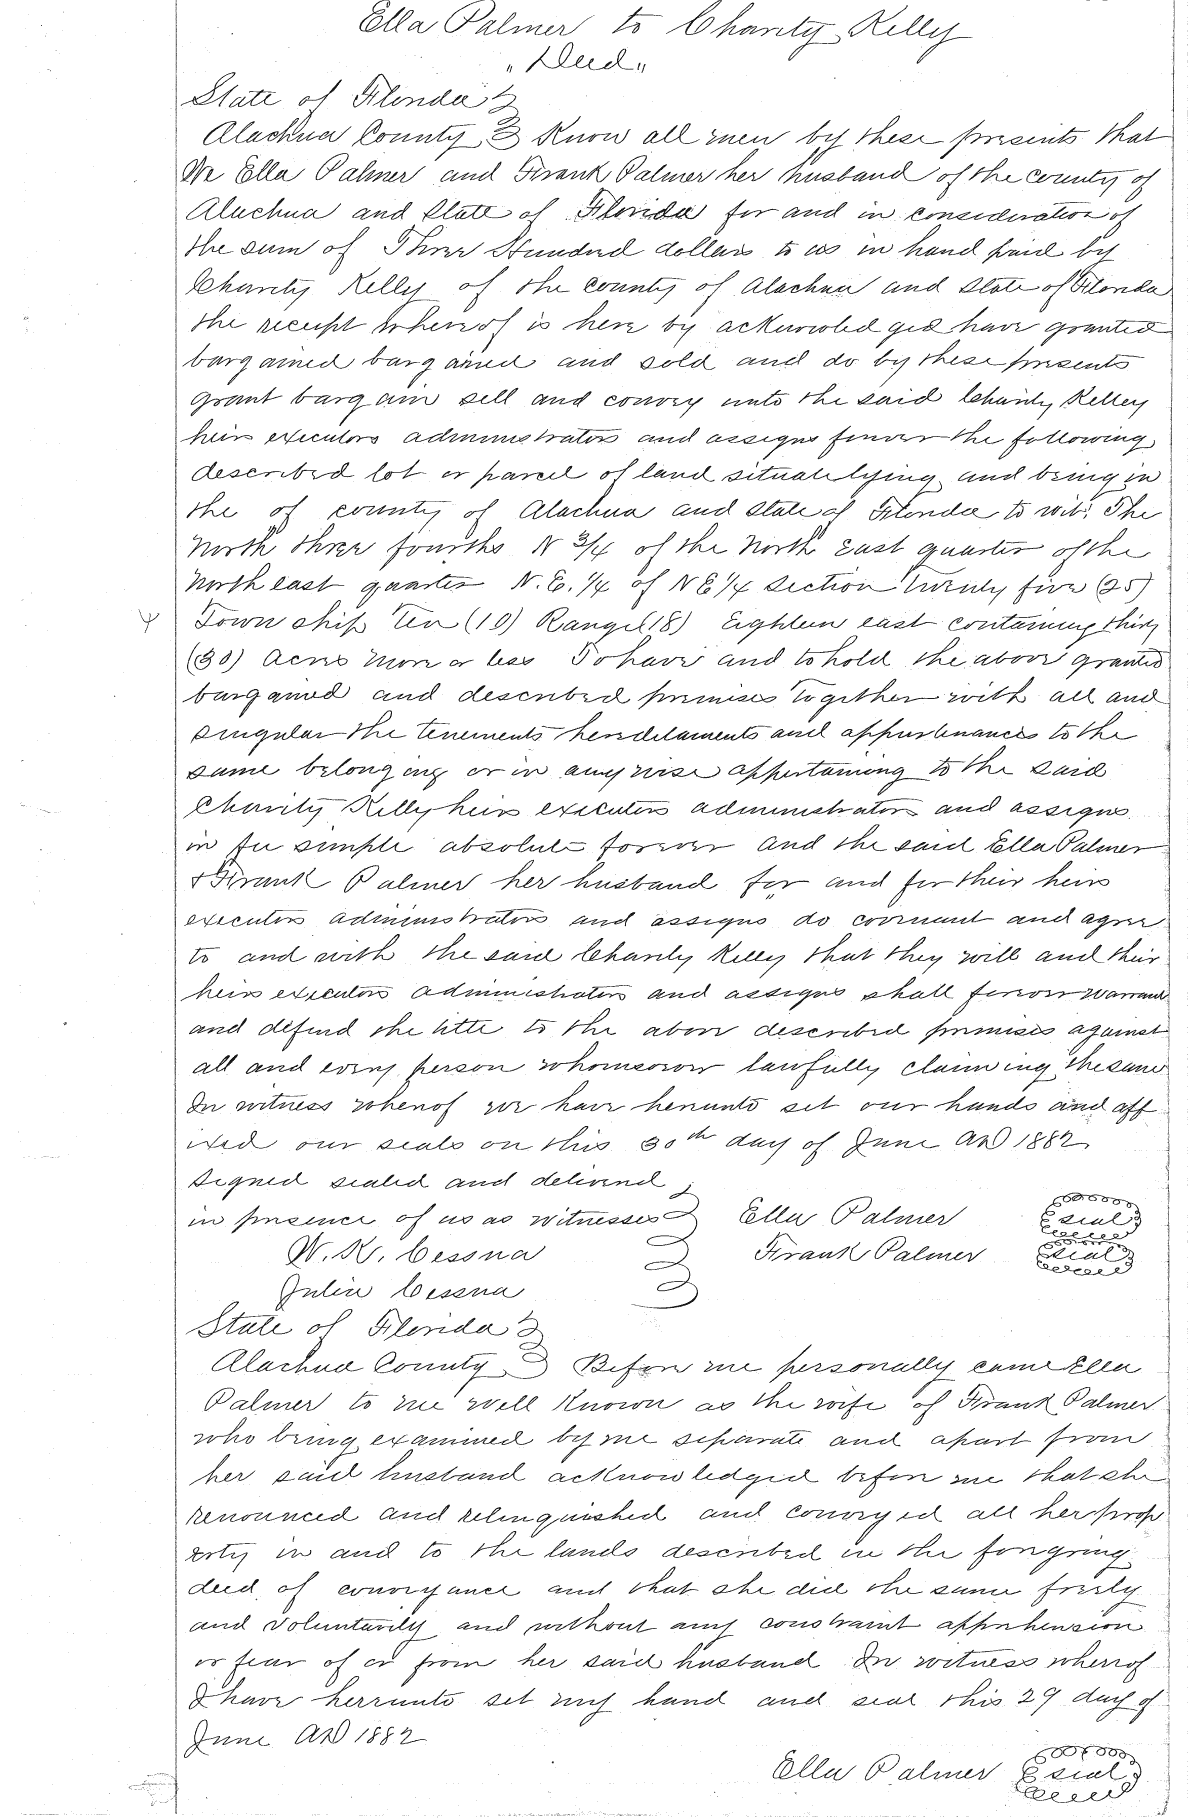 Ella Palmer to Charity Kelly
"Deed"
State of Florida
Alachua County Know all men by these presents that
We Ella Palmer and Frank Palmer her husband of the county of
Alachua and State of Florida for and in consideration of
the sum of Three Hundred dollars to us in hand paid by
Charity Kelly of the county of Alachua and State of Florida
the receipt whereof is here by acknowledged have granted
bargained bargained and sold and do by these presents
grant bargain sell and convey unto the said Charity Kelley
heirs executors administrators and assigns forever the following
described lot or parcel of land situate lying and being in
the of county of Alachua and State of Florida to wit: The
North three fourths N 3/4 of the North east quarter of the
North east quarter N.E. 1/4 of NE 1/4 Section Twenty five (25)
Town ship Ten (10) Range (18) Eighteen east containing thirty
(30) Acres More or less To have and to hold the above granted
bargained and described premises together with all and
singular the tenements hereditaments and appurtenances to the
same belonging or in anywise appertaining to the said
Charity Kelly heirs executors administrators and assigns
in fee simple absolute forever and the said Ella Palmer
& Frank Palmer her husband for and for their heirs
executors administrators and assigns do covenant and agree
to and with the said Charity Kelly that they will and their
heirs executors administrators and assigns shall forever warrant
and defend the title to the above described premises against
all and every person whomsoever lawfully claiming the same
In witness whereof we have hereunto set our hands and aff
ixed our seals on this 30th day of June AD 1882
Signed sealed and delivered
in presence of us as witnesses Ella Palmer seal
W. K. Cessna Frank Palmer seal
Julia Cessna
State of Florida
Alachua County Before me personally came Ella
Palmer to me well known as the wife of Frank Palmer
who being examined by me separate and apart from
her said husband acknowledged before me that she
renounced and relinquished and conveyed all her prop
erty in and to the lands described in the foregoing
deed of conveyance and that she did the same freely
and voluntarily and without any constraint apprehension
or fear of or from her said husband In witness whereof
I have hereunto set my hand and seal this 29 day of
June AD 1882
Ella Palmer seal